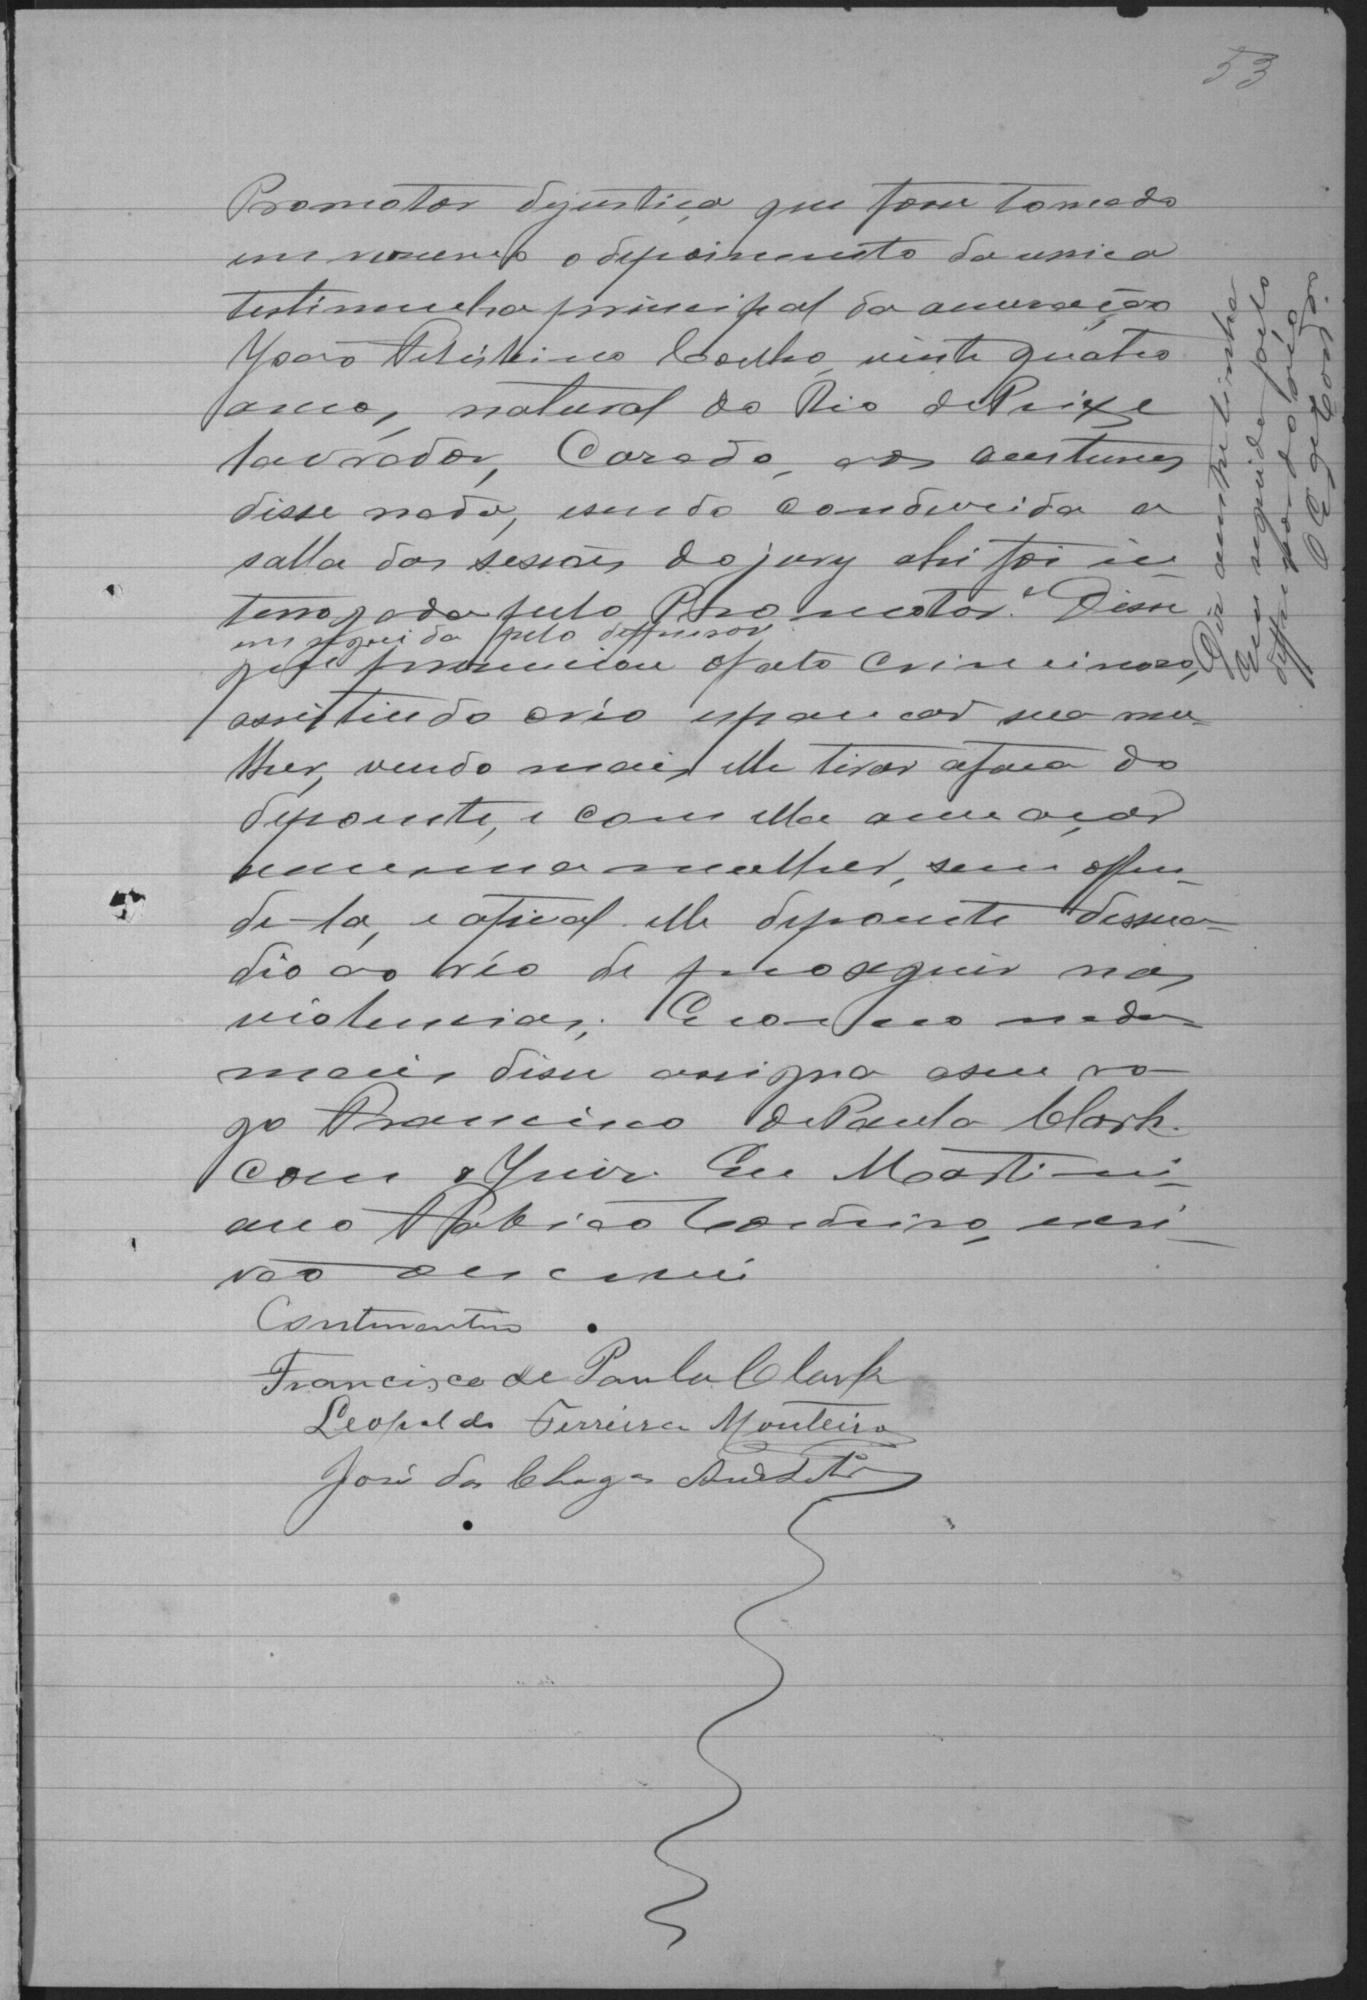 53
Promotor dejustiça que fosse tomado
em resumo o depoimento da unica
testimunha principal da accusação
João Coelho, vinte quatro
annos, natural do Rio do Peixe
lavrador, Casado, aos custumes
disse nada, esendo conduzida a
salla das sessões do jury ahi foi in
terrogada pelo Promotor. Disse
em seguida pelo deffensor
que presenciou ofato criminoso,
assistindo oréo espancar sua mu-
lher, vendo mais elle tirar afaca do
depoente, e com ella ameaçar
a mesma mulher, sem offen-
de-la, e afinal elle depoente dessua-
dio ao réo de proseguir nas
violencias. E como nada
mais disse assigna aseu ro-
go Francisco dePaula Clark.
com o Juiz. Eu Martini-
ano Cordeiro, escri-
vão oescrevi
Francisco de Paula Clark
Leopoldo Ferreira Monteiro
José das Chagas
Diz a entrelinha
em seguida pelo
deffensor do réo